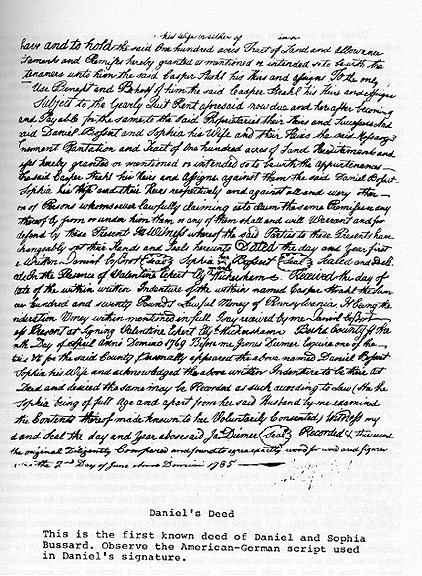 his Wife or either of
have and to hold the said One hundred acres Tract of Land and Allowance
and Premises hereby granted or mentioned or intended so to be with the
unto him the said Casper Stahl his Heirs and assigns To the only
Use Benefit and Behoof of him the said Casper Stahl his Heirs and assigns
Subject to the Yearly Quit Rent aforesaid now due and hereafter becoming
and Payable for the same to the said Proprietaries their Heirs and Successors And
said Daniel and Sophia his Wife and their Heirs the said Messuage
Plantation and Tract of One hundred acres of Land Hereditaments and
hereby granted or mentioned or intended so to be with the appurtenances
the said Casper Stahl his Heirs and Assigns against them the said Daniel
Sophia his Wife and their Heirs respectively and against all and every other
Persons whomsoever lawfully claiming or to claim the same Premises or any
thereof by from or under him them or any of them shall and will Warrant and for
defend by these Presents In Witness whereof the said Parties to these Presents have
set their Hands and Seals hereunto Dated the day and Year first
Written Daniel Seal Sophia Seal Sealed and
In the Presence of Valentine Received the day of
date of the within written Indenture of the within named Casper Stahl the Sum
hundred and seventy Pounds Lawful Money of Pennsylvania It being the
Money within mentioned in full received by me Daniel
Present at Signing Valentine Berks County
Day of April anno Domini 1769 Before me James Diemer Esquire one of the
for the said County Personally appeared the above named Daniel
Sophia his Wife and acknowledged the above written Indenture to be their Act
Deed and desired the same may be Recorded as such according to Law She the
Sophia being of full Age and apart from her said Husband by me examined
the Contents thereof made known to her Voluntarily Consented Witness my
and Seal the day and Year abovesaid Ja Diemer Seal Recorded
the original Diligently Compared and found to agree exactly word for word and figure
the 2nd Day of June Domini 1785
Daniel's Deed
This is the first known deed of Daniel and Sophia
Bussard. Observe the American-German script used
in Daniel's signature.